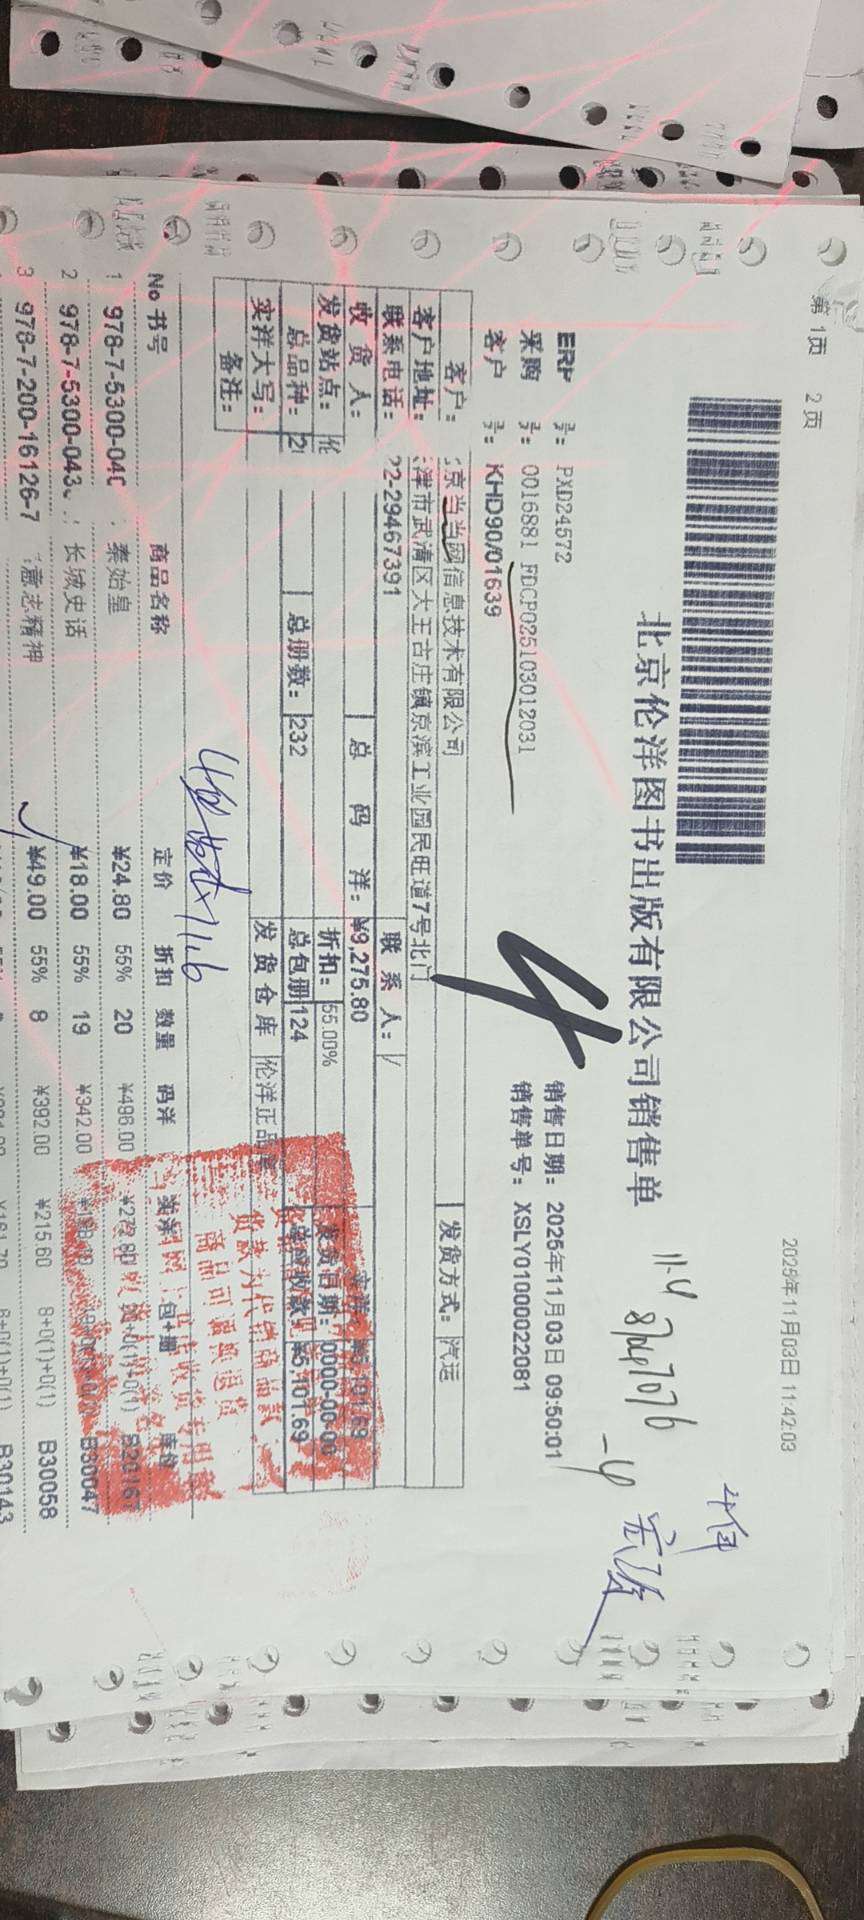 第 1页 2 页
2025年11月03日 11:42:03
北京伦洋图书出版有限公司销售单
11.4
4包
ERP 号: PXD24572
销售日期: 2025年11月03日 09:50:01
采购 号: 0016881 FDCP025103012031
销售单号: XSLY01000022081
客户 号: KHD90/01639
4
客户: 京当当网信息技术有限公司
发货方式: 汽运
客户地址: 津市武清区大王古庄镇京滨工业园民旺道7号北门
联系电话: 22-29467391
联系人: /
收货人:
总码洋: ¥9,275.80
实洋: ¥5,101.69
发货站点:
折扣: 55.00%
发货日期: 0000-00-00
总品种:
总册数: 232
总包册 124
总应收款 ¥5,101.69
实洋大写:
发货仓库 伦洋正品库
备注:
11.6
No 书号 商品名称 定价 折扣 数量 码洋 实洋 包+册 库位
1 978-7-5300-040 秦始皇 ¥24.80 55% 20 ¥496.00 ¥272.80 B20167
2 978-7-5300-043 长城史话 ¥18.00 55% 19 ¥342.00 B30047
3 978-7-200-16126-7 意志精神 ¥49.00 55% 8 ¥392.00 ¥215.60 8+0(1)+0(1) B30058
8+0(1)+0(1) B30143
货款为代销商品款
商品可随时退货